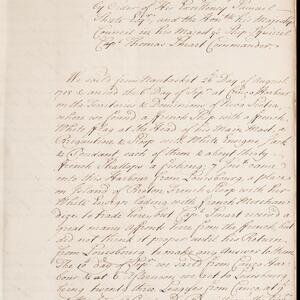 by Order of His Excellency Samuel
Shute Esqr. and the Honble. his Majestys
Council in his Majestys Ship Squirrel
Capt. Thomas Smart Commander
We saild from Nantasket 28th Day of August
1718 & arrived the 6th Day of Sepr. at Canço Harbour
in the Territories & Dominions of Nova Scotia,
where we found a French Ship with a French
White Flag at the Head of his Main Mast, a
Brigantine & Sloop with White Ensign Jack
& Pendant each of them & about thirty
French Shallops a fishing, who came
into this Harbour from Louisbourg, a place
on Island of Breton French Ship with her
White Ensign lading with French Merchan
dize to trade here, but Capt. Smart recvd a
great many affronts here from the French, but
did not think it proper until his Return
from Louisbourg to make any answer to them
The 12th day of Sepr. we saild from Canço Har
bour & at 6 Afternoon, we got to Louisbourg
being twenty three Leagues from Canço at if